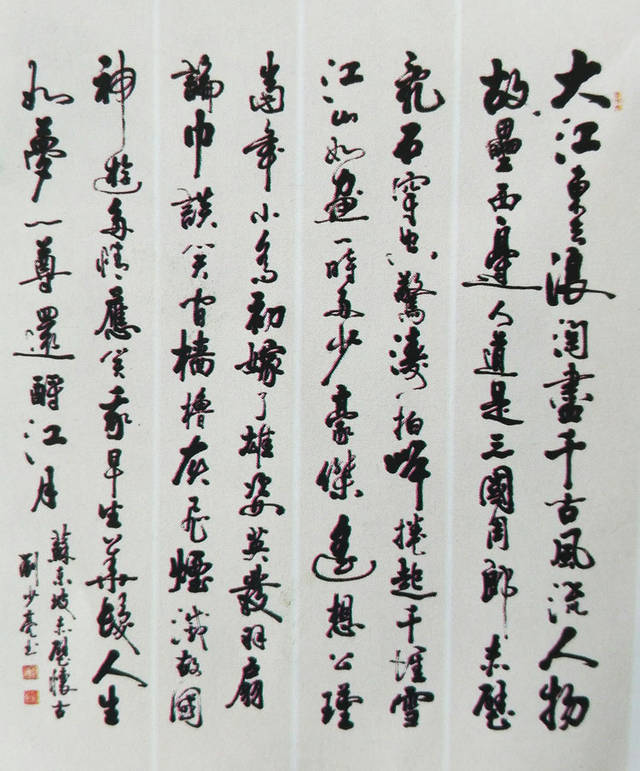 大江東去浪淘盡千古風流人物
故壘西邊人道是三國周郎赤壁
亂石穿空驚濤拍岸捲起千堆雪
江山如畫一時多少豪傑遙想公瑾
當年小喬初嫁了雄姿英發羽扇
綸巾談笑間檣櫓灰飛煙滅故國
神遊多情應笑我早生華髮人生
如夢一尊還酹江月
蘇東坡赤壁懷古
劉少亮书